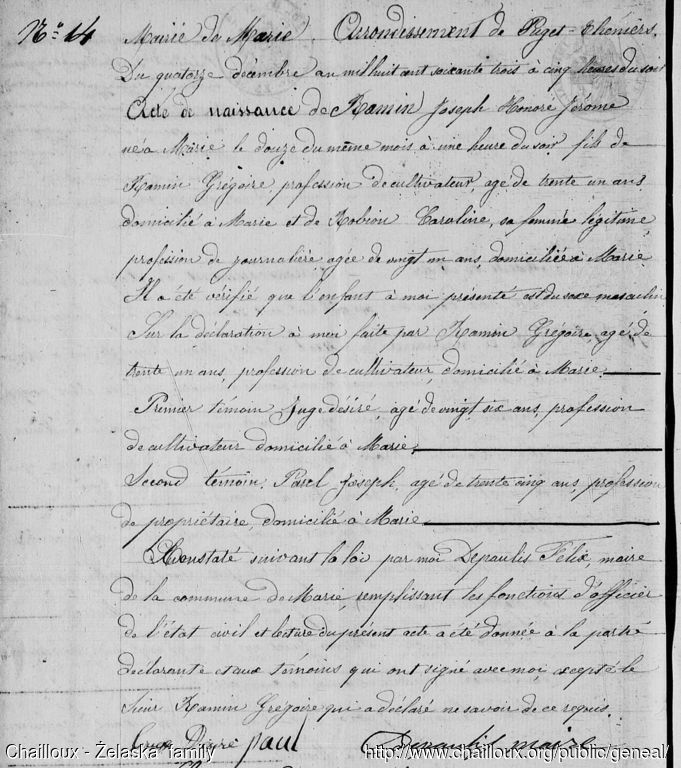 N.º 14
Mairie de Marie. Arrondissement de Puget-Théniers.
Du quatorze décembre an mil huit cent soixante trois à cinq heures du soir
Acte de naissance de Ramin Joseph Honoré Jérome
né à Marie le douze du même mois à une heure du soir fils de
Ramin Grégoire profession de cultivateur, agé de trente un ans
domicilié à Marie et de Robion Caroline, sa femme légitime,
profession de journalière agée de vingt un ans, domiciliée à Marie
Il a été vérifié que l'enfant à moi présenté est du sexe masculin
Sur la déclaration à moi faite par Ramin Grégoire, agé de
trente un ans, profession de cultivateur, domicilié à Marie.
Premier témoin Juge désiré, agé de vingt six ans, profession
de cultivateur domicilié à Marie.
Second témoin, Joseph, agé de trente cinq ans, profession
de propriétaire, domicilié à Marie
Constaté suivant la loi par moi Depaulis Félix, maire
de la commune de Marie, remplissant les fonctions d'officier
de l'état civil et lecture du présent acte a été donnée à la partie
déclarante et aux témoins qui ont signé avec moi, excepté le
Sieur Ramin Grégoire qui a déclaré ne savoir de ce requis.
paul Depaulis maire
Chailloux - Żelaska family
http://www.chailloux.org/public/geneal/